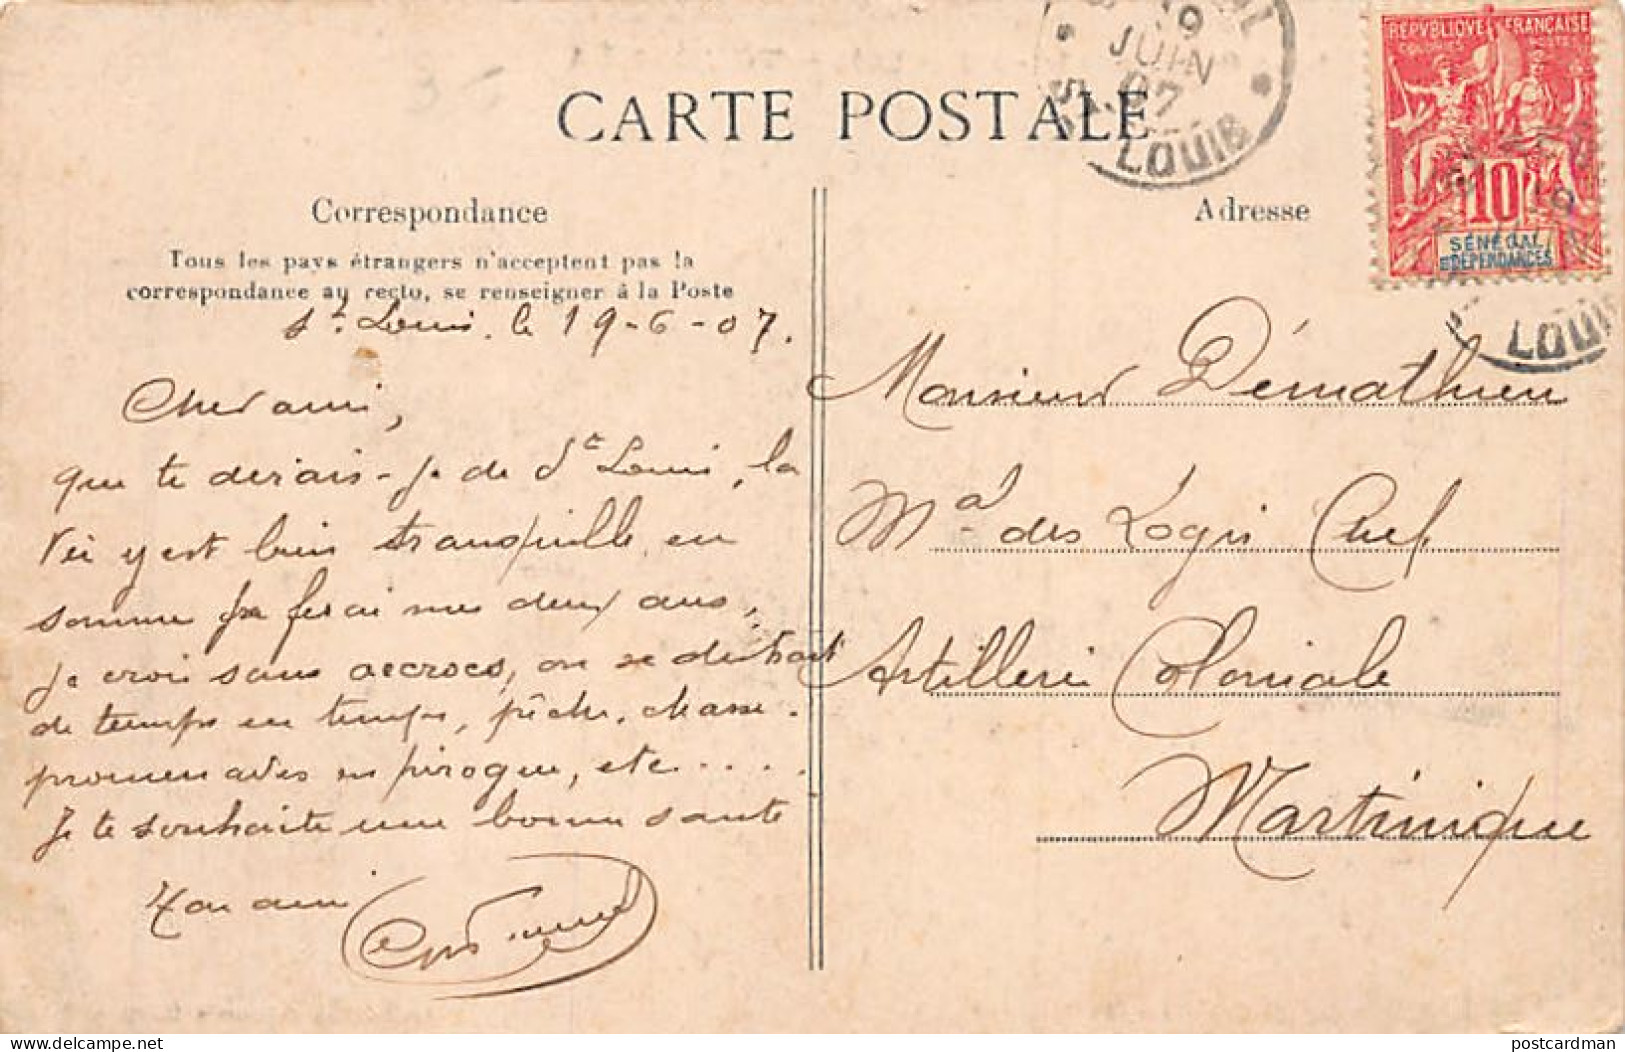 CARTE POSTALE
19
JUIN
07
ST LOUIS
REPVBLIQVE FRANÇAISE
COLONIES POSTES
10
SÉNÉGAL
ET DÉPENDANCES
LOUIS
Correspondance
Tous les pays étrangers n'acceptent pas la
correspondance au recto, se renseigner à la Poste
St. Louis. le 19-6-07.
Cher ami,
que te dirais-je de St Louis, la
vie y est bien tranquille, en
somme je ferai mes deux ans,
je crois sans accrocs, on se distrait
de temps en temps, pêche, chasse.
promenades en pirogue, etc.....
Je te souhaite une bonne santé
Ton ami
Adresse
Monsieur Démathieu
Mal des Logis Chef
Artillerie Coloniale
Martinique
delcampe.net
postcardman